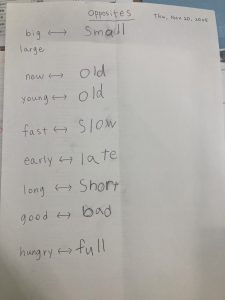 Opposites
Thu, Nov 20, 2025
big ↔ Small
large
new ↔ Old
young ↔ Old
fast ↔ Slow
early ↔ late
long ↔ Short
good ↔ bad
hungry ↔ full